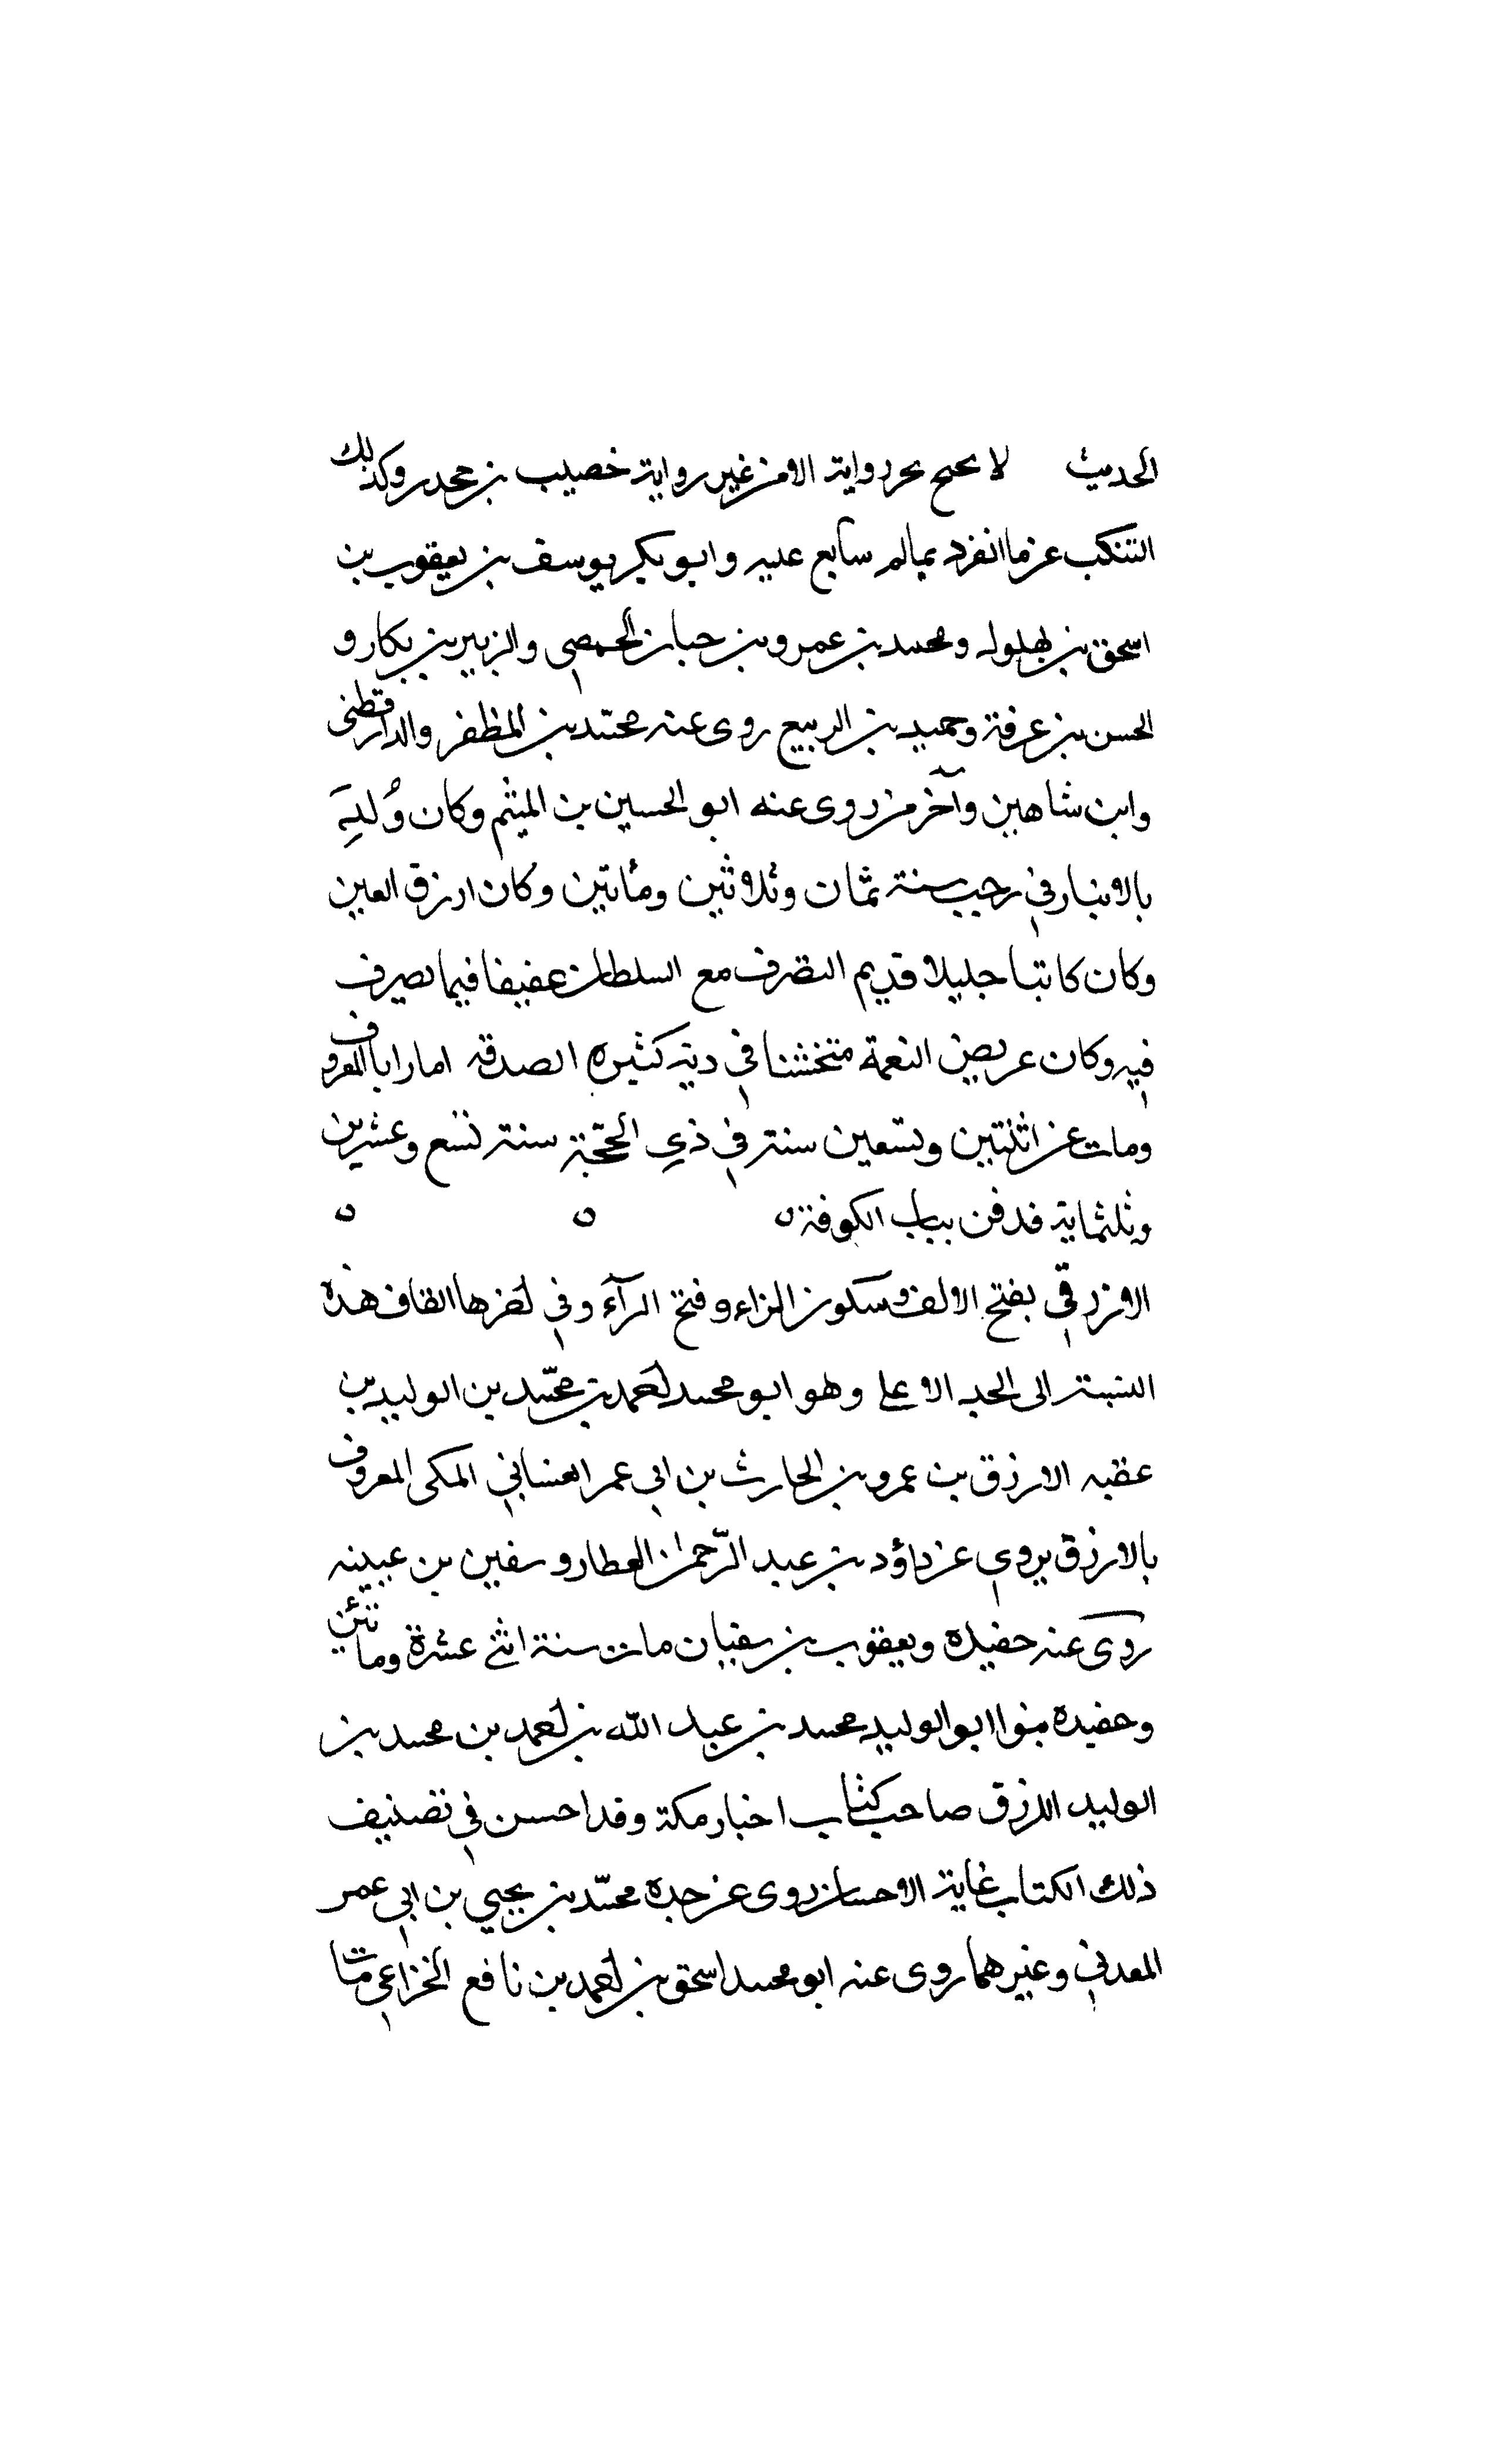 الحديث لا يحتج بحر رواية الا من غير رواية خصيب بن جحدر وكذلك
التنكب عن ما انفرد بما لم يتابع عليه وابو بكر يوسف بن يعقوب بن
اسحق بن بهلول ومحمد بن عمرو بن حبان الحمصي والزبير بن بكار و
الحسن بن عرفة وحميد بن الربيع روى عنه محمّد بن المظفر والدارقطني
وابن شاهين وآخر من روى عنه ابو الحسين بن الميثم وكان وُلِدَ
بالانبار في رجب سنة ثمان وثلاثين ومأتين وكان ازرق العين
وكان كاتبا جليلا قديم التصرف مع السلطان عفيفا فيما تصرف
فيه وكان عريض النعمة متخشنا في دينه كثيره الصدقه امارا بالمعروف
ومات عن اثنتين وتسعين سنة في ذي الحجّة سنة تسع وعشرين
وثلثماية فدفن بباب الكوفة ه ه ه
الازرقي بفتح الالف وسكون الزاء وفتح الرآء وفي اخرها القاف هذه
النسبة الى الجد الاعلى وهو ابو محمد احمد بن محمّد بن الوليد بن
عقبه الازرق بن عمرو بن الحارث بن ابي عمر الغساني المكى المعروف
بالازرق يروي عن داؤد بن عبد الرّحمن العطار وسفين بن عيينه
روى عنه حفيده ويعقوب بن سفيان مات سنة اثنى عشرة ومائتين
وحفيده ابو الوليد محمد بن عبد الله بن احمد بن محمد بن
الوليد الازرق صاحب كتاب اخبار مكة وقد احسن في تصنيف
ذلك الكتاب غاية الاحسان روى عن جده محمّد بن يحيي بن ابي عمر
العدني وغيرهما روى عنه ابو محمد اسحق بن احمد بن نافع الخزاعي مات